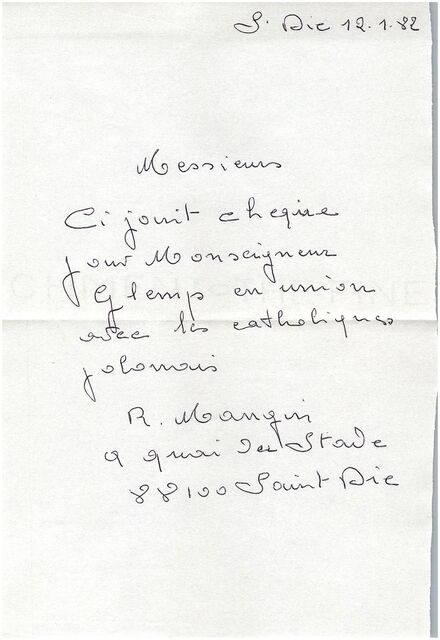 S. Die 12.1.82
Messieurs
Ci joint cheque
pour Monseigneur
Glemp en union
avec les catholiques
polonais
R. Mangin
9 quai du Stade
88100 Saint Die